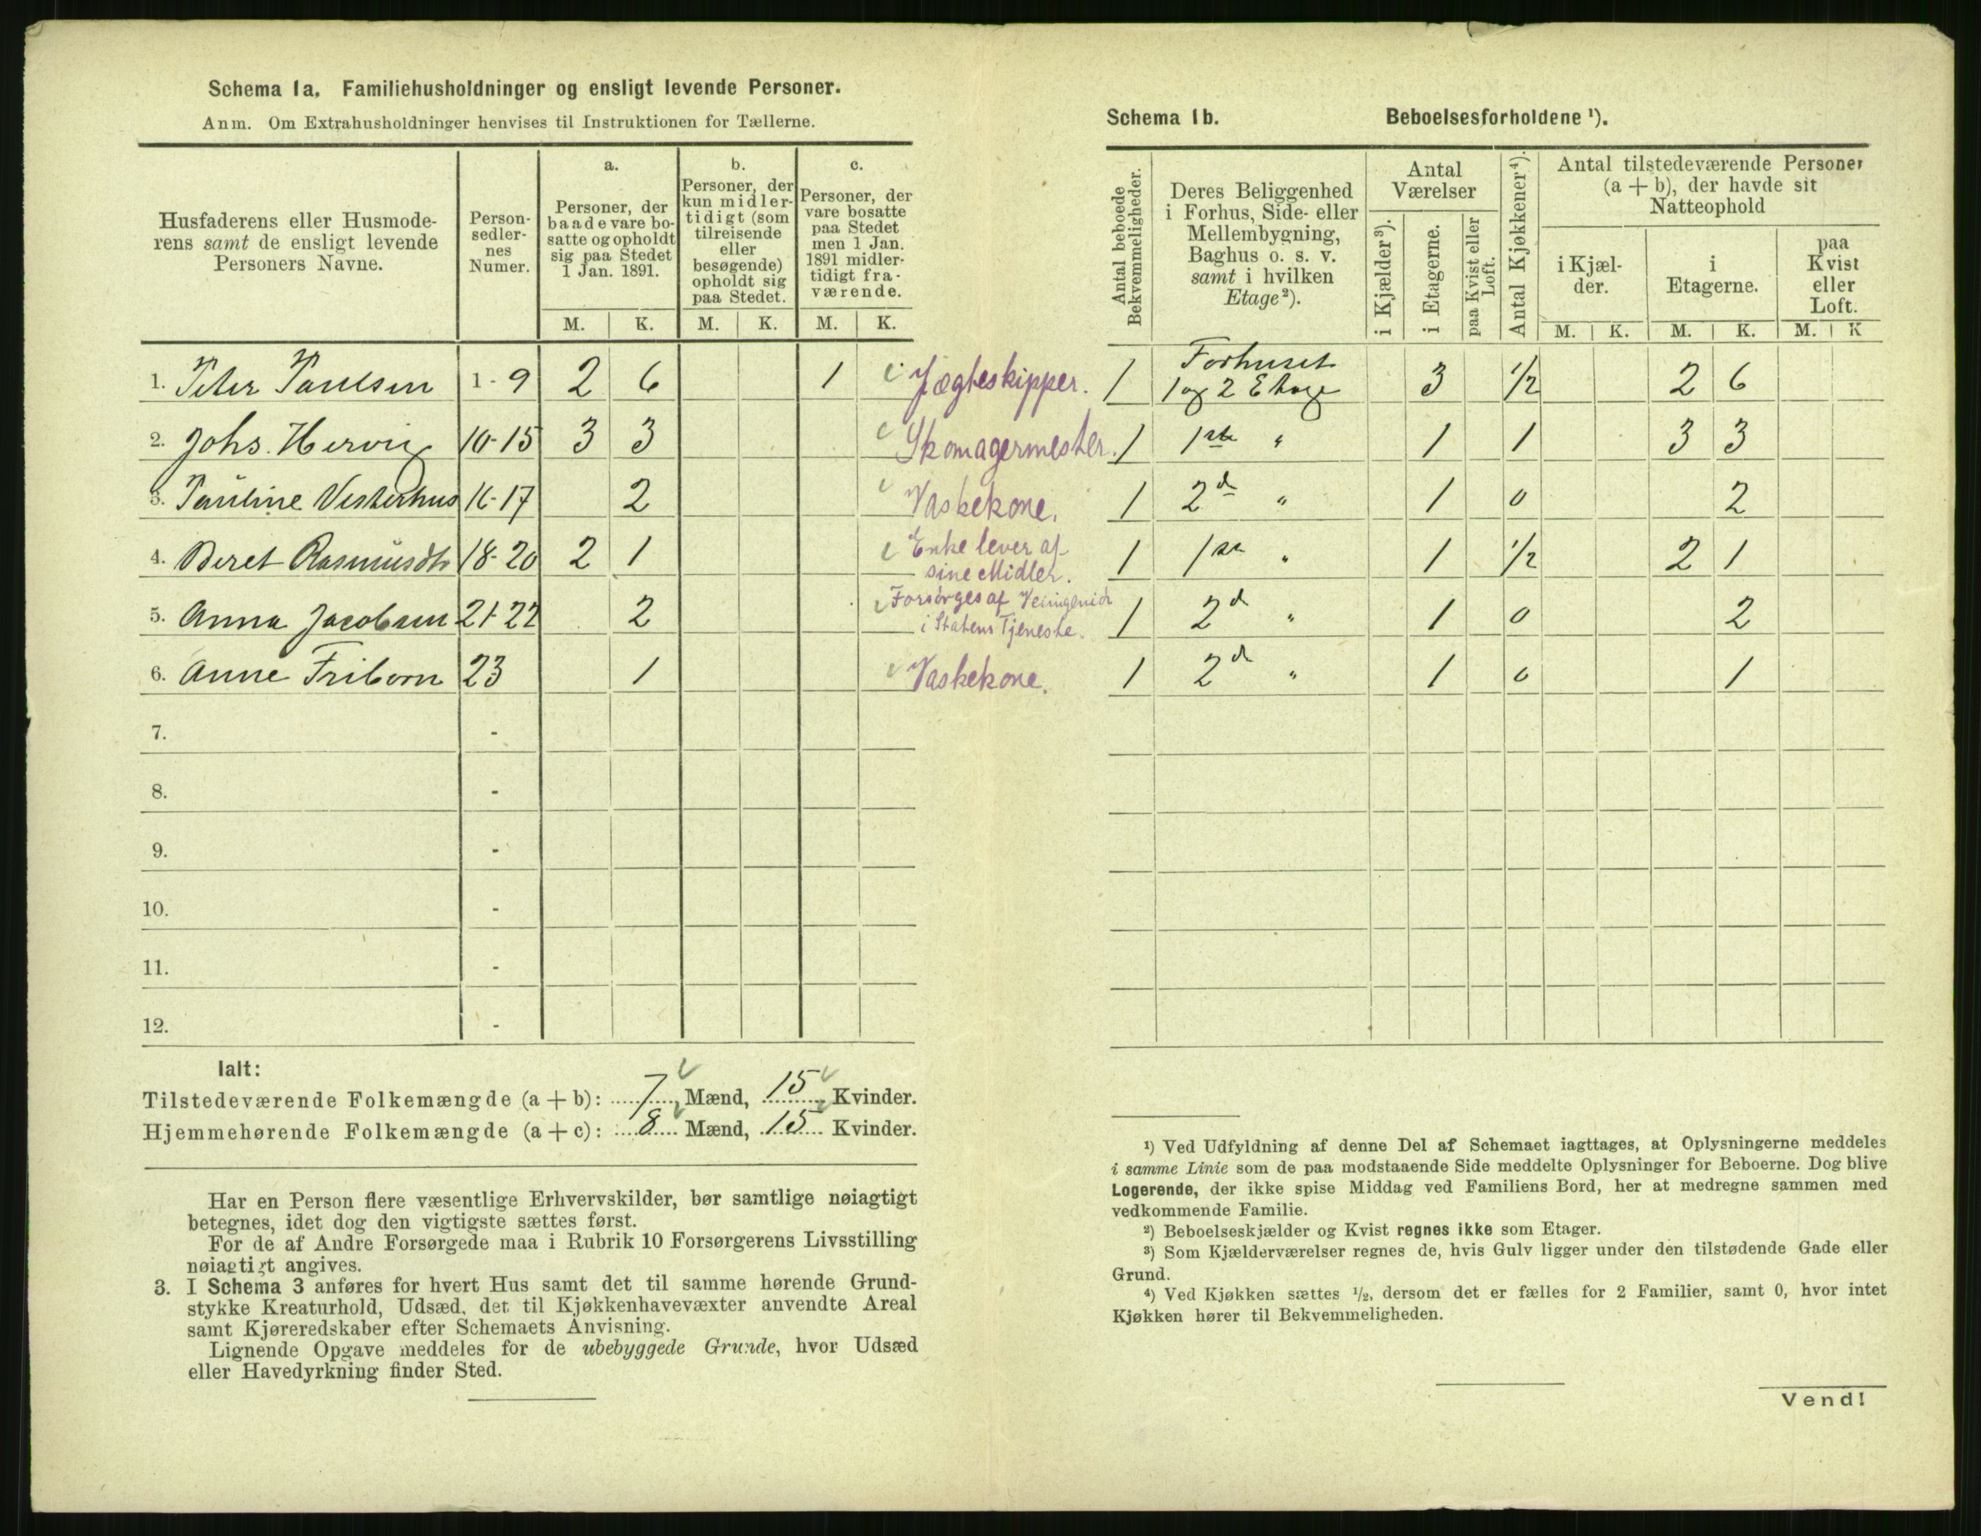 Schema 1a. Familiehusholdninger og ensligt levende Personer.
Anm. Om Extrahusholdninger henvises til Instruktionen for Tællerne.
Husfaderens eller Husmode-
rens samt de ensligt levende
Personers Navne.
Person-
sedler-
nes
Numer.
a.
Personer, der
baade vare bo-
satte og opholdt
sig paa Stedet
1 Jan. 1891.
b.
Personer, der
kun midler-
tidigt (som
tilreisende
eller
besøgende)
opholdt sig
paa Stedet.
c.
Personer, der
vare bosatte
paa Stedet
men 1 Jan.
1891 midler-
tidigt fra-
værende.
M. K. M. K. M. K.
1. Peter Paulsen 1-9 2 6 1 Jægteskipper.
2. Johs. Hervig 10-15 3 3 Skomagermester.
3. Pauline Vesterhus 16-17 2 Vaskekone.
4. Beret Rasmusdtr 18-20 2 1 Enke lever af
sine Midler.
5. Anna Jacobsen 21-22 2 Forsørges af Veiingeniør
i Statens Tjeneste.
6. Anne Friborn 23 1 Vaskekone.
7. -
8. -
9. -
10. -
11. -
12. -
Ialt:
Tilstedeværende Folkemængde (a + b): 7 Mænd, 15 Kvinder.
Hjemmehørende Folkemængde (a + c): 8 Mænd, 15 Kvinder.
Har en Person flere væsentlige Erhvervskilder, bør samtlige nøiagtigt
betegnes, idet dog den vigtigste sættes først.
For de af Andre Forsørgede maa i Rubrik 10 Forsørgerens Livsstilling
nøiagtigt angives.
3. I Schema 3 anføres for hvert Hus samt det til samme hørende Grund-
stykke Kreaturhold, Udsæd, det til Kjøkkenhavevæxter anvendte Areal
samt Kjøreredskaber efter Schemaets Anvisning.
Lignende Opgave meddeles for de ubebyggede Grunde, hvor Udsæd
eller Havedyrkning finder Sted.
Schema 1b. Beboelsesforholdene ¹).
Antal beboede
Bekvemmeligheder.
Deres Beliggenhed
i Forhus, Side- eller
Mellembygning,
Baghus o. s. v.
samt i hvilken
Etage ²).
Antal
Værelser
i Kjælder ³).
i Etagerne.
paa Kvist eller
Loft.
Antal Kjøkkener ⁴).
Antal tilstedeværende Personer
(a + b), der havde sit
Natteophold
i Kjæl-
der.
i
Etagerne.
paa
Kvist
eller
Loft.
M. K. M. K. M. K
1 Forhuset
1 og 2 Etage 3 1/2 2 6
1 1ste " 1 1 3 3
1 2d " 1 0 2
1 1ste " 1 1/2 2 1
1 2d " 1 0 2
1 2d " 1 0 1
¹) Ved Udfyldning af denne Del af Schemaet iagttages, at Oplysningerne meddeles
i samme Linie som de paa modstaaende Side meddelte Oplysninger for Beboerne. Dog blive
Logerende, der ikke spise Middag ved Familiens Bord, her at medregne sammen med
vedkommende Familie.
²) Beboelseskjælder og Kvist regnes ikke som Etager.
³) Som Kjælderværelser regnes de, hvis Gulv ligger under den tilstødende Gade eller
Grund.
⁴) Ved Kjøkken sættes ¹/₂, dersom det er fælles for 2 Familier, samt 0, hvor intet
Kjøkken hører til Bekvemmeligheden.
Vend!